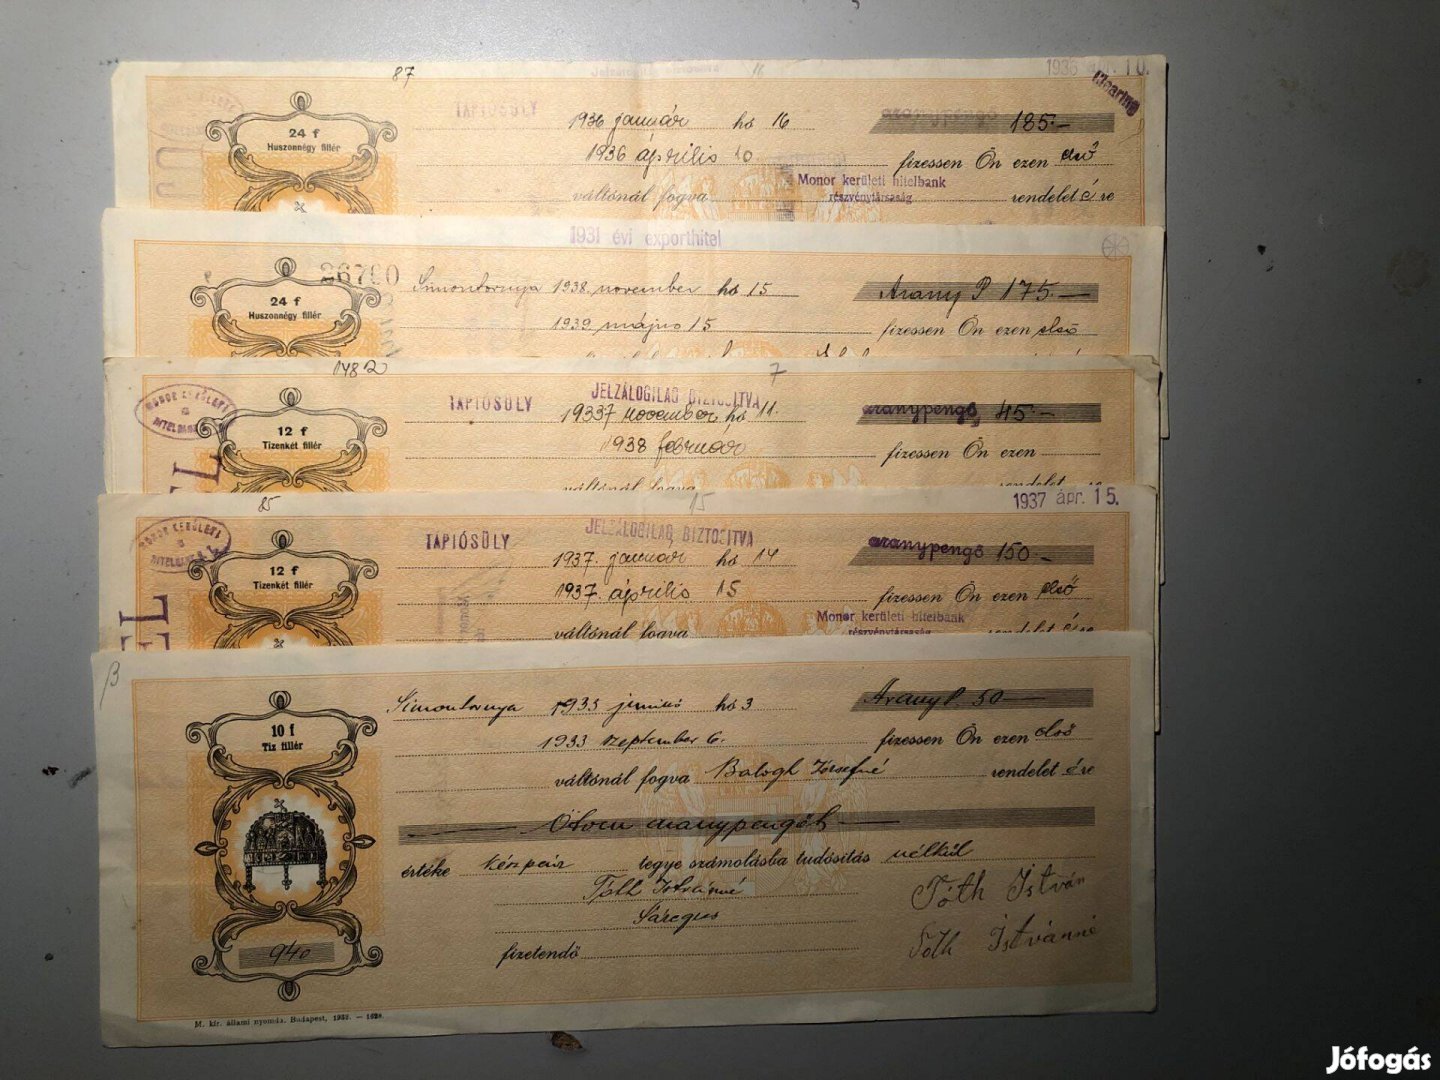 87
1936 ápr. 10.
Clearing
24 f
Huszonnégy fillér
TÁPIÓSÜLY
1936 január hó 16
aranypengő 185.—
1936 április 10
fizessen Ön ezen első
váltónál fogva
Monor kerületi hitelbank
részvénytársaság
rendeletére
1931 évi exporthitel
26700
24 f
Huszonnégy fillér
Simontornya 1938. november hó 15
Arany P 175.—
1939. május 15
fizessen Ön ezen első
1482
7
MONOR KERÜLETI
HITELBANK
12 f
Tizenkét fillér
TÁPIÓSÜLY
JELZÁLOGILAG BIZTOSITVA
19337 november hó 11.
aranypengő 45.—
1938 február
fizessen Ön ezen
váltónál fogva
rendeletére
85
15
1937 ápr. 15.
MONOR KERÜLETI
HITELBANK R. T.
12 f
Tizenkét fillér
TÁPIÓSÜLY
JELZÁLOGILAG BIZTOSITVA
1937. január hó 14
aranypengő 150.—
1937. április 15
fizessen Ön ezen első
váltónál fogva
Monor kerületi hitelbank
részvénytársaság
rendeletére
10 f
Tiz fillér
Simontornya 1933 június hó 3
Arany P. 50 —
1933 szeptember 6.
fizessen Ön ezen első
váltónál fogva Balogh Józsefné rendeletére
Ötven aranypengőt
értéke készpénz tegye számolásba tudósitás nélkül
Tóth Istvánné
Tóth István
Sáregres
Tóth Istvánné
fizetendő
940
M. kir. állami nyomda. Budapest, 1932. — 1628.
Jófogás